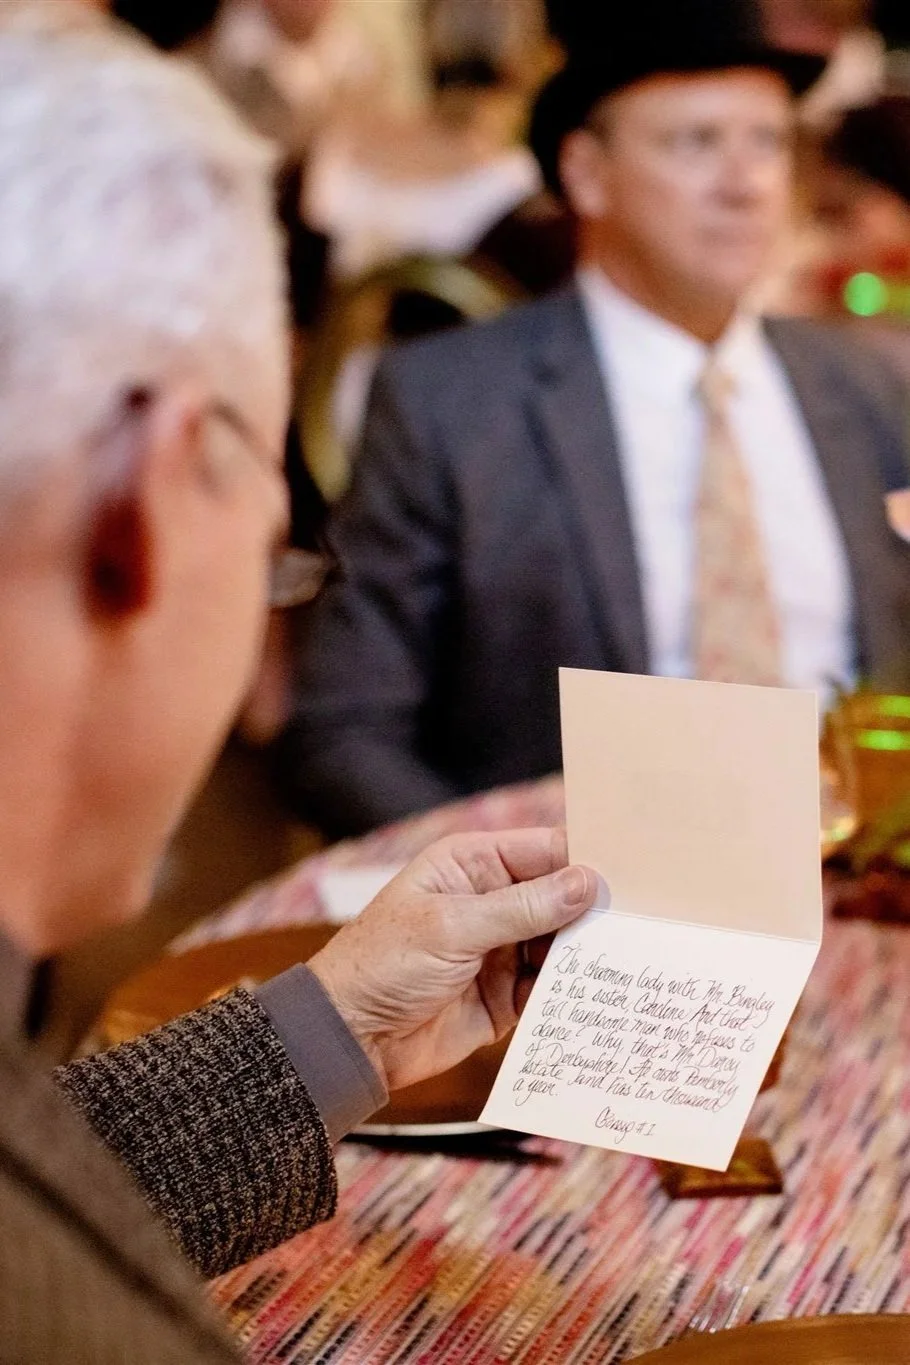 The charming lady with Mr. Bingley
is his sister, Caroline. And that
tall handsome man who refuses to
dance? Why, that's Mr. Darcy
of Derbyshire! He owns Pemberly
estate and has ten thousand
a year.
Gossip #1